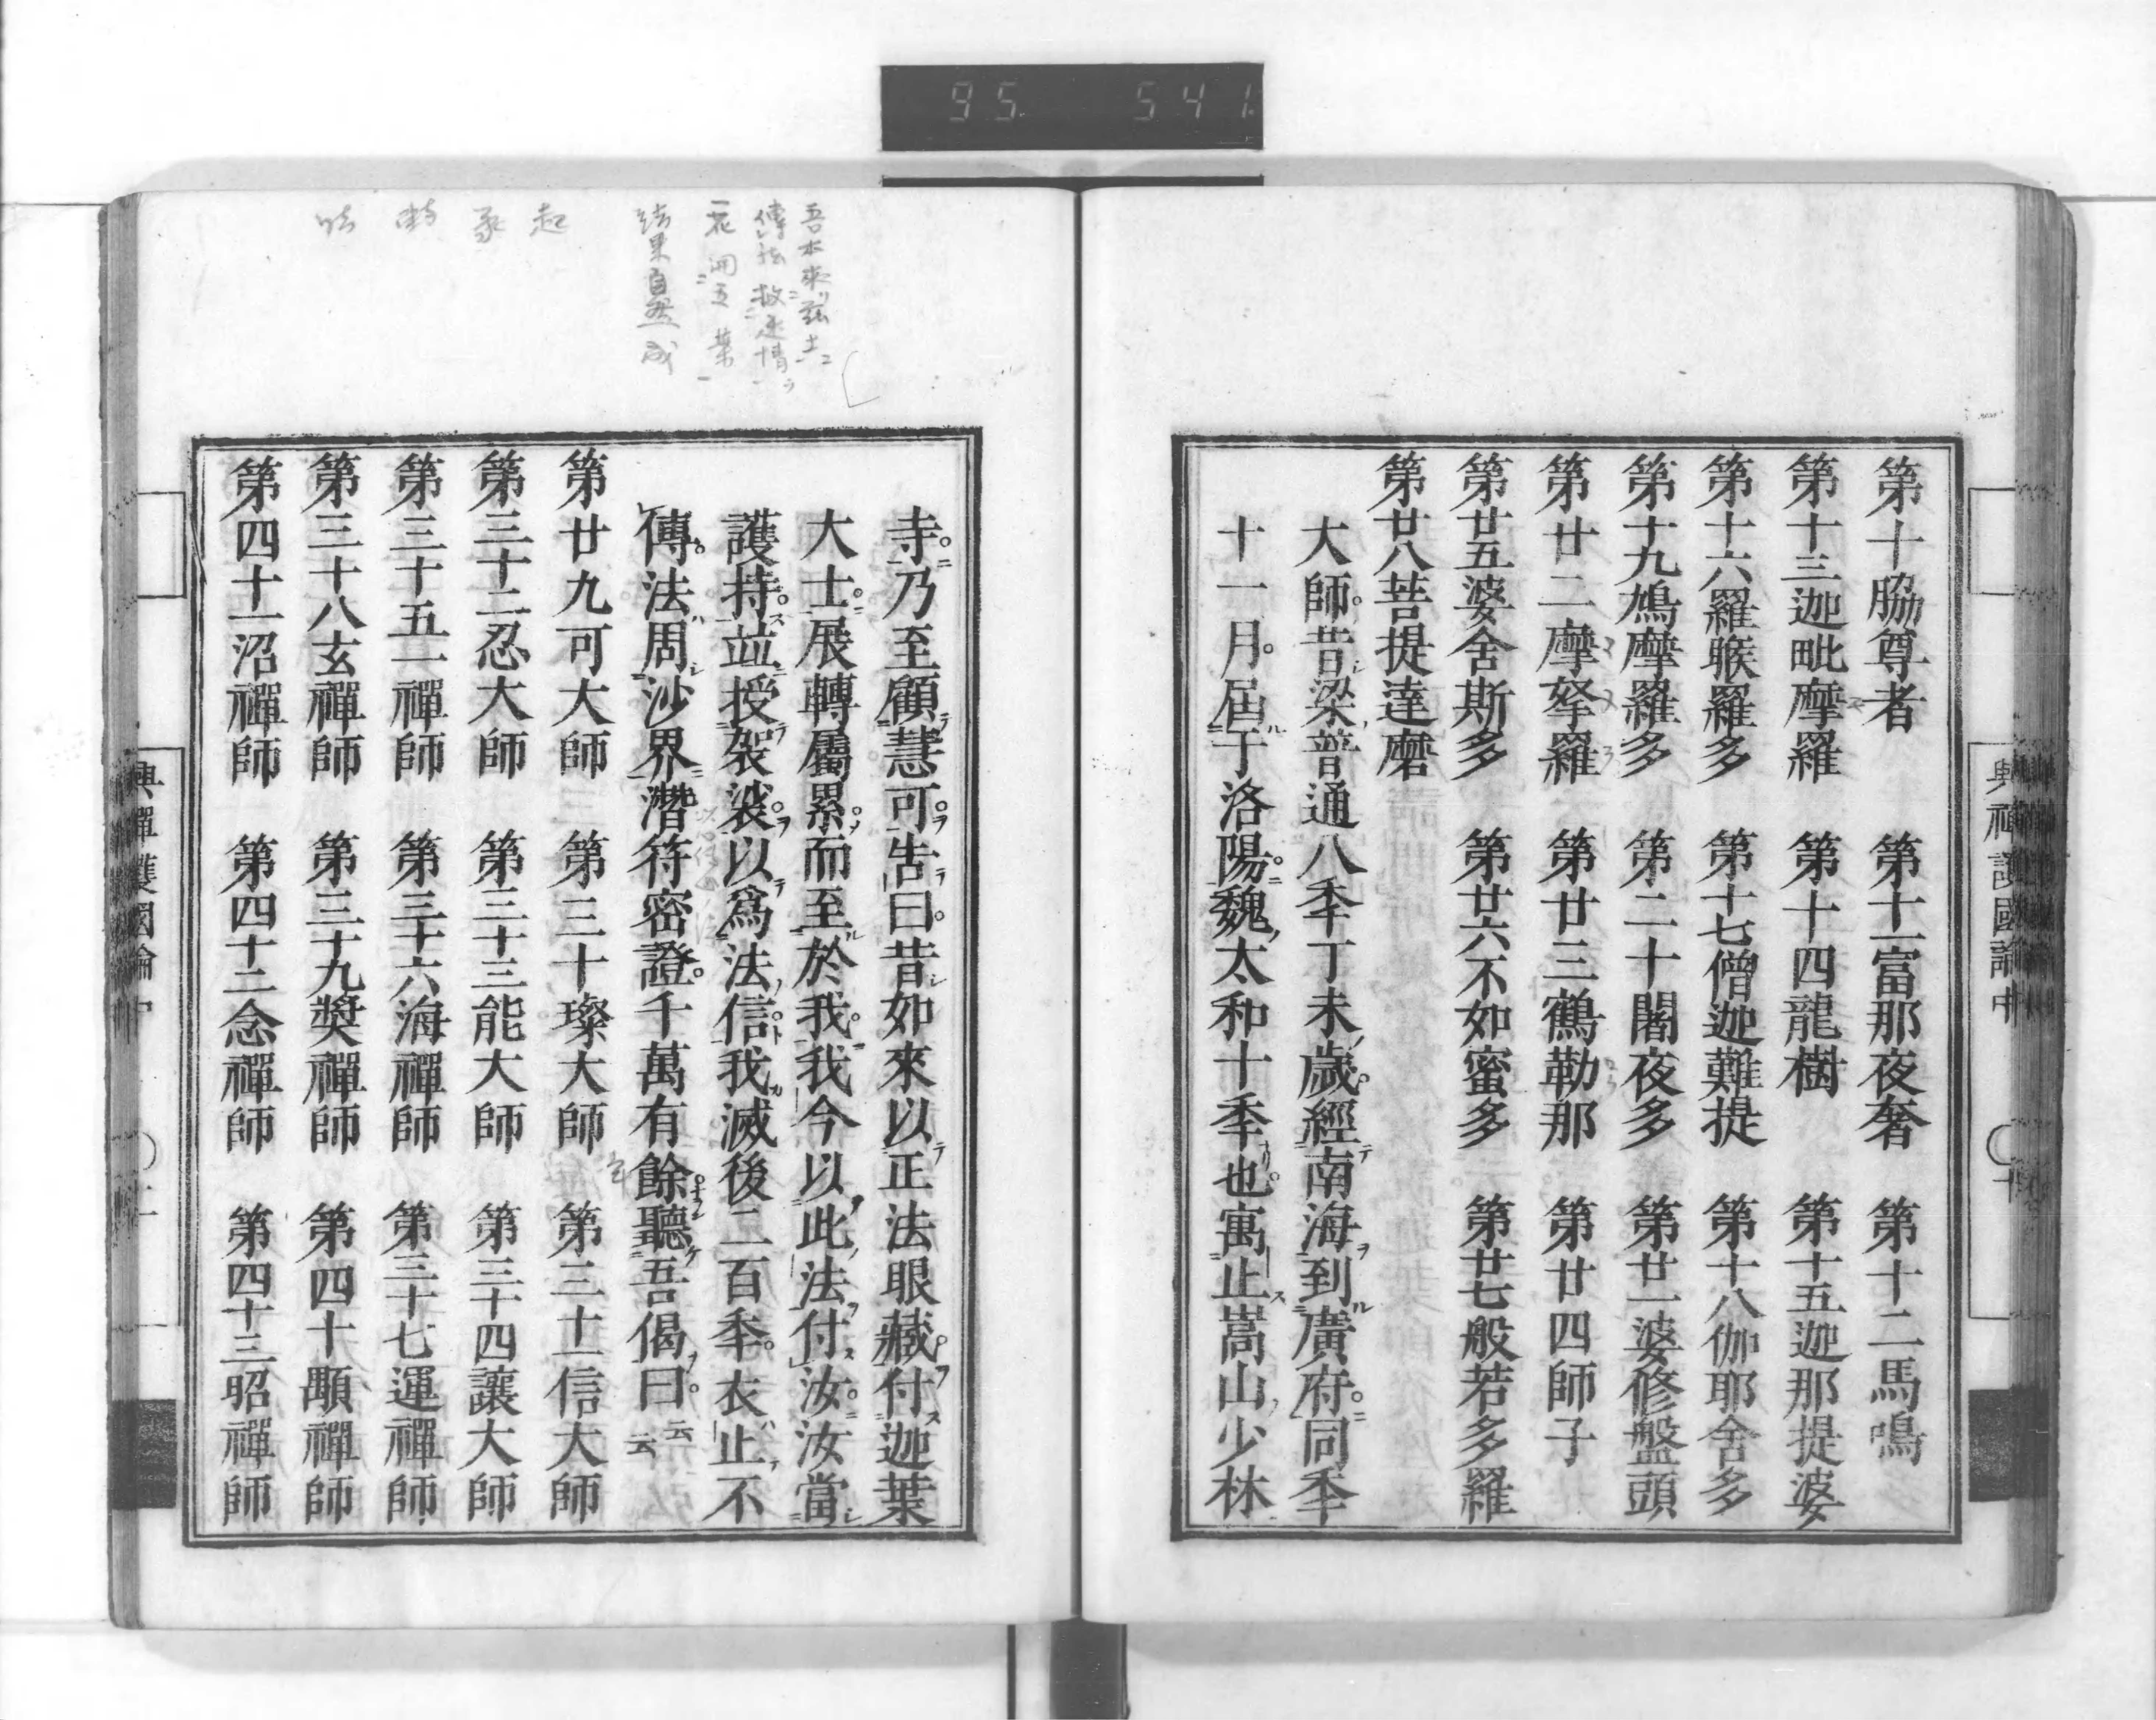 95 541
第十脇尊者 第十一富那夜奢 第十二馬鳴
第十三迦毗摩羅 第十四龍樹 第十五迦那提婆
第十六羅睺羅多 第十七僧迦難提 第十八伽耶舍多
第十九鳩摩羅多 第二十闍夜多 第廿一婆修盤頭
第廿二摩拏羅 第廿三鶴勒那 第廿四師子
第廿五婆舍斯多 第廿六不如蜜多 第廿七般若多羅
第廿八菩提達磨
大師昔梁普通八秊丁未歲經南海到廣府同秊
十一月屆于洛陽魏太和十秊也寓止嵩山少林
興禪護國論中 〇十
寺乃至顧慧可告曰昔如來以正法眼藏付迦葉
大士展轉屬累而至於我我今以此法付汝汝當
護持竝授袈裟以爲法信我滅後二百秊衣止不
傳法周沙界潛符密證千萬有餘聽吾偈曰云云
第廿九可大師 第三十璨大師 第三十一信大師
第三十二忍大師 第三十三能大師 第三十四讓大師
第三十五一禪師 第三十六海禪師 第三十七運禪師
第三十八玄禪師 第三十九奬禪師 第四十顒禪師
第四十一沼禪師 第四十二念禪師 第四十三昭禪師
興禪護國論中
吾本來茲土
傳法救迷情
一花開五葉
結果自然成